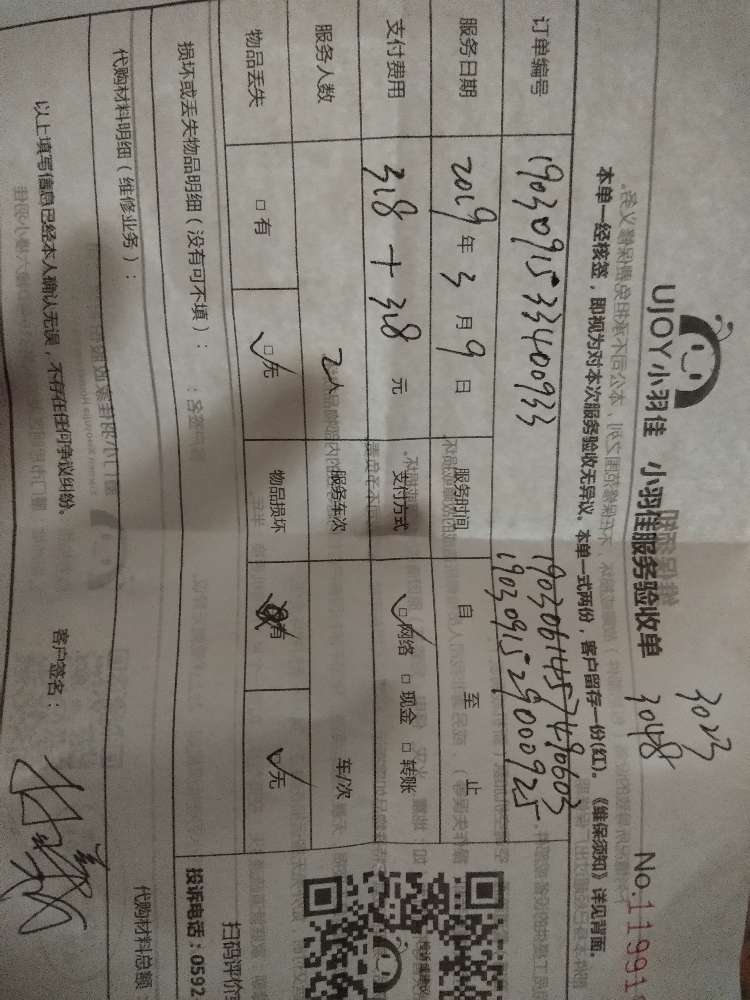 3023
3048
UJOY小羽佳 小羽佳服务验收单
No.11991
本单一经核签，即视为对本次服务验收无异议。本单一式两份，客户留存一份(红)。《维保须知》详见背面。
订单编号 1903091533400933 1903061457490603
1903091529000925
服务日期 2019年3月9日 服务时间 自 至 止
支付费用 318+318元 支付方式 ☑网络 □现金 □转账
服务人数 2人 服务车次 车/次
物品丢失 □有 ☑无 物品损坏 有 ☑无
损坏或丢失物品明细（没有可不填）：
扫码评价
投诉电话：0592
代购材料明细（维修业务）： 代购材料总额
以上填写信息已经本人确认无误，不存在任何争议纠纷。 客户签名：